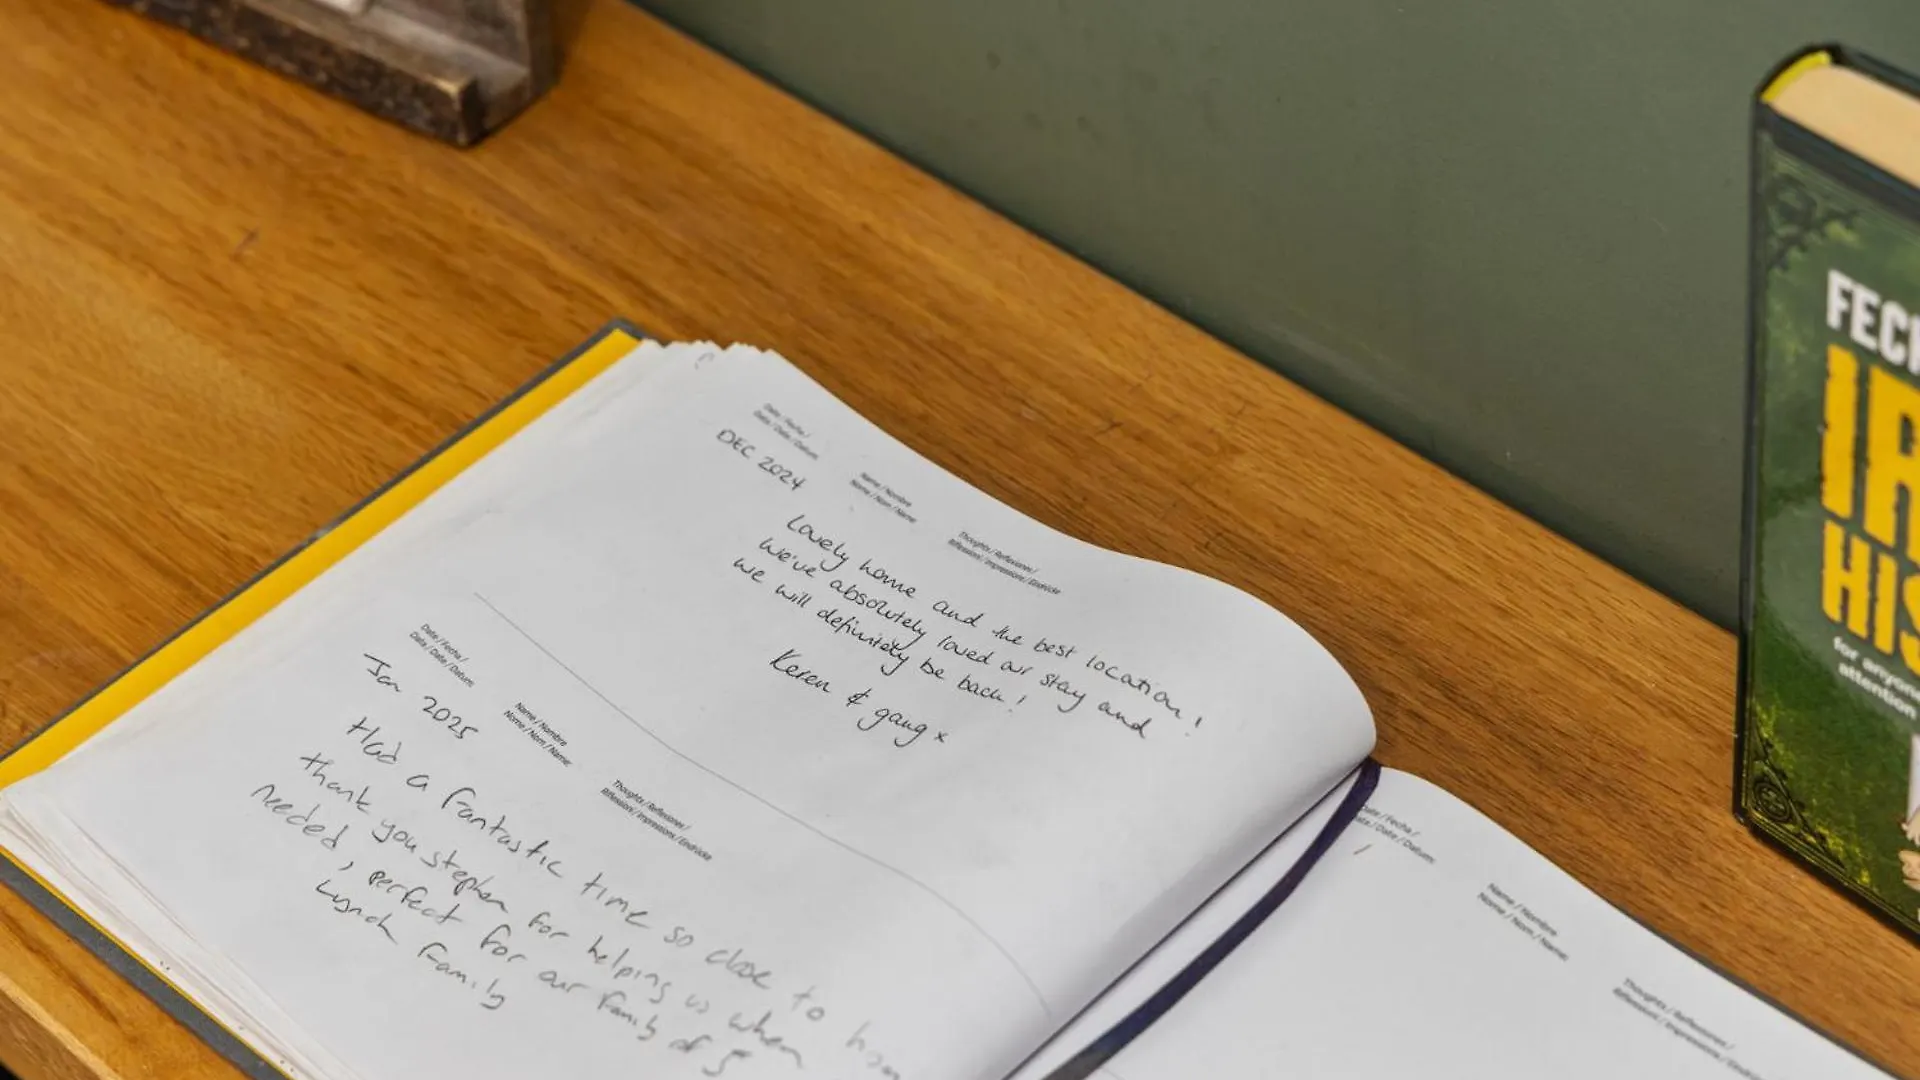 Date / Fecha /
Data / Date / Datum:
DEC 2024
Name / Nombre
Nome / Nom / Name:
Thoughts / Reflexiones /
Riflessioni / Impressions / Eindrücke
Lovely home and the best location!
We've absolutely loved our stay and
we will definitely be back!
Keren & gang x
Date / Fecha /
Data / Date / Datum:
Jan 2025
Name / Nombre
Nome / Nom / Name:
Thoughts / Reflexiones /
Riflessioni / Impressions / Eindrücke
Had a fantastic time so close to
thank you stephen for helping us when
needed, perfect for our family of 5
Lynch Family
Date / Fecha /
Data / Date / Datum:
Name / Nombre
Nome / Nom / Name:
Thoughts / Reflexiones /
Riflessioni / Impressions / Eindrücke
FEC
IR
HIS
for anyone
attention